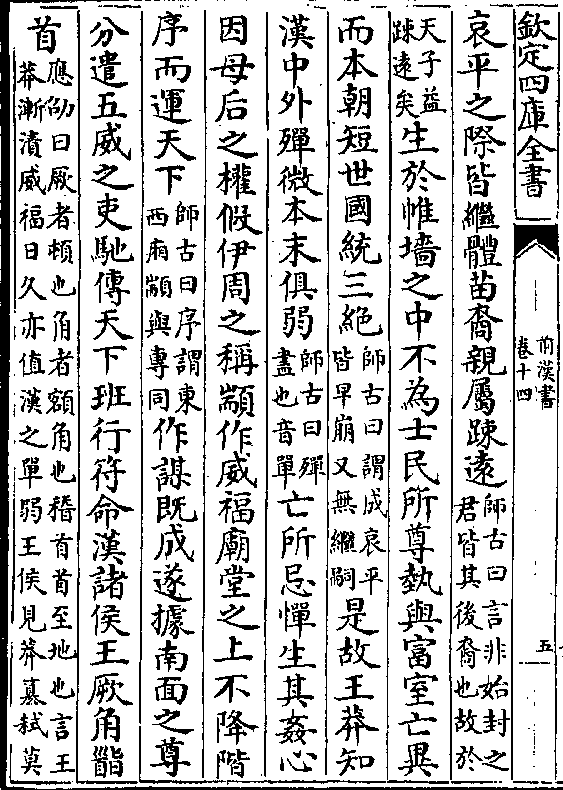 欽定四庫全書
前漢書
卷十四
五
哀平之際皆繼體苗裔親屬踈遠師古曰言非始封之君皆其後裔也故於
天子益踈遠矣生於帷墻之中不為士民所尊埶與富室亡異
而本朝短世國統三絶師古曰謂成哀平皆早崩又無繼嗣是故王莽知
漢中外殫微本末俱弱師古曰殫盡也音單亡所忌憚生其姦心
因母后之權假伊周之稱顓作威福廟堂之上不降階
序而運天下師古曰序謂東西廂顓與專同作謀既成遂據南面之尊
分遣五威之吏馳傳天下班行符命漢諸侯王厥角䭫
首應劭曰厥者頓也角者額角也稽首首至地也言王莽漸漬威福日久亦值漢之單弱王侯見莽簒弑莫